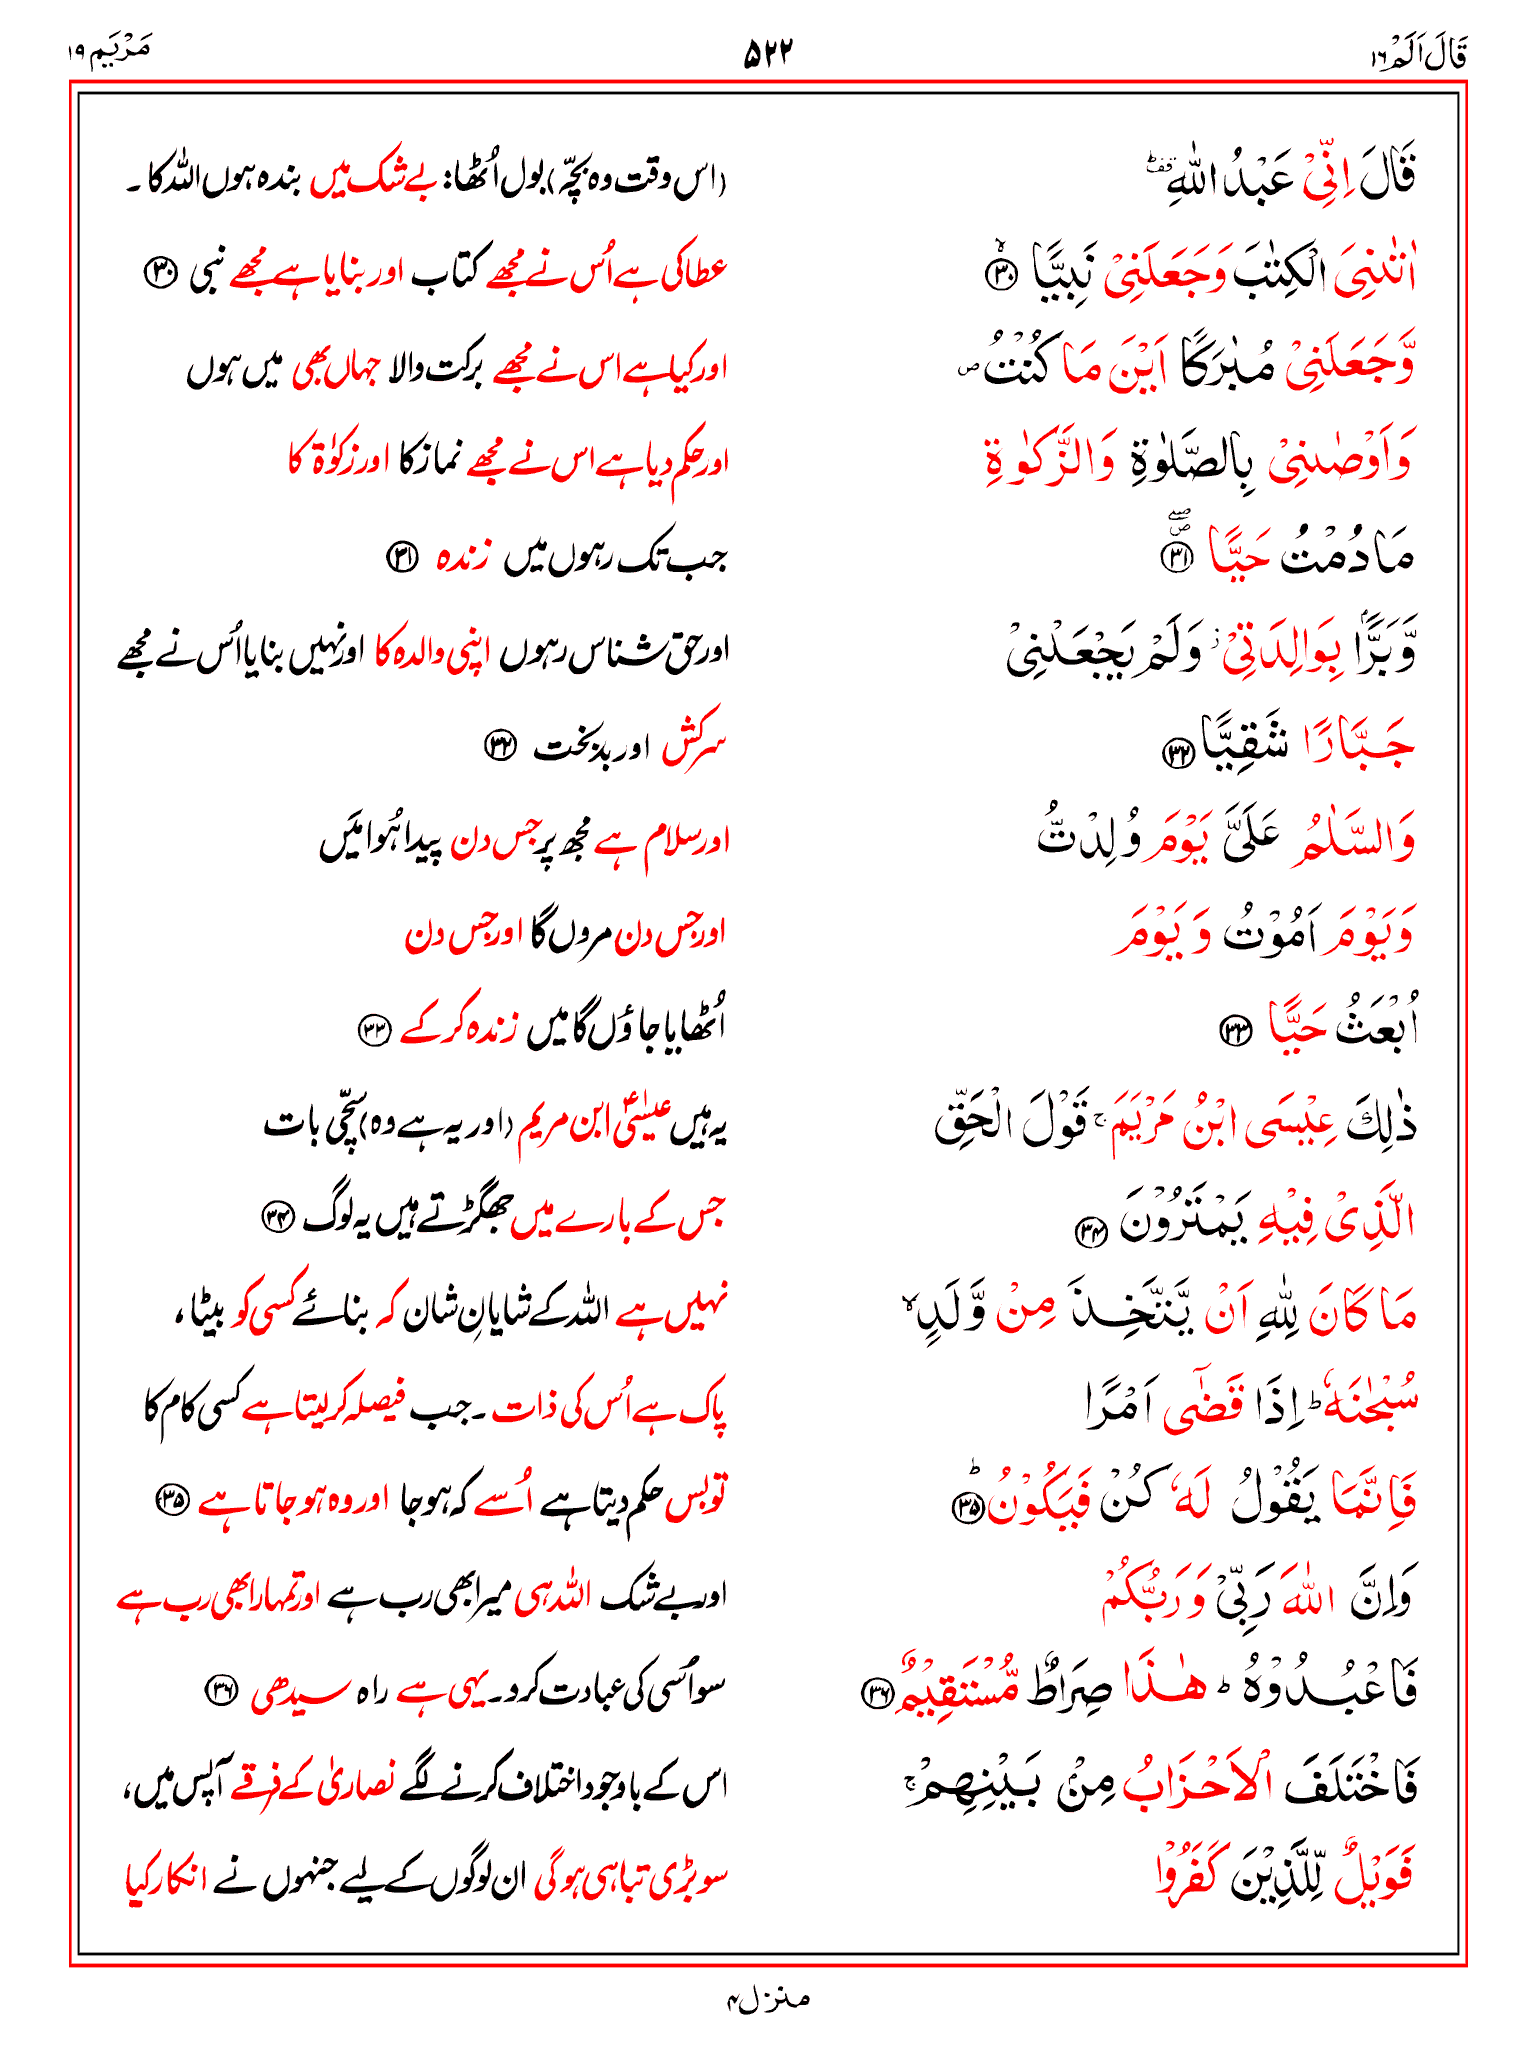 قَالَ اَلَمْ ۱۶ ۵۲۲ مَرْیَم ۱۹
قَالَ اِنِّیْ عَبْدُ اللّٰهِ ؕقف (اس وقت وہ بچّہ) بول اُٹھا: بے شک میں بندہ ہوں اللہ کا۔
اٰتٰىنِیَ الْكِتٰبَ وَ جَعَلَنِیْ نَبِیًّا ۙ﴿۳۰﴾ عطا کی ہے اُس نے مجھے کتاب اور بنایا ہے مجھے نبی ﴿۳۰﴾
وَّ جَعَلَنِیْ مُبٰرَكًا اَیْنَ مَا كُنْتُ ۪ اور کیا ہے اس نے مجھے برکت والا جہاں بھی میں ہوں
وَ اَوْصٰىنِیْ بِالصَّلٰوةِ وَ الزَّكٰوةِ اور حکم دیا ہے اس نے مجھے نماز کا اور زکوٰۃ کا
مَا دُمْتُ حَیًّا ﴿۳۱﴾ جب تک رہوں میں زندہ ﴿۳۱﴾
وَّ بَرًّۢا بِوَالِدَتِیْ ؗ وَ لَمْ یَجْعَلْنِیْ اور حق شناس رہوں اپنی والدہ کا اور نہیں بنایا اُس نے مجھے
جَبَّارًا شَقِیًّا ﴿۳۲﴾ سرکش اور بدبخت ﴿۳۲﴾
وَ السَّلٰمُ عَلَیَّ یَوْمَ وُلِدْتُّ اور سلام ہے مجھ پر جس دن پیدا ہُوا میَں
وَ یَوْمَ اَمُوْتُ وَ یَوْمَ اور جس دن مروں گا اور جس دن
اُبْعَثُ حَیًّا ﴿۳۳﴾ اُٹھایا جاؤں گا میں زندہ کرکے ﴿۳۳﴾
ذٰلِكَ عِیْسَى ابْنُ مَرْیَمَ ۚ قَوْلَ الْحَقِّ یہ ہیں عیسٰیؑ ابن مریم (اور یہ ہے وہ) سچّی بات
الَّذِیْ فِیْهِ یَمْتَرُوْنَ ﴿۳۴﴾ جس کے بارے میں جھگڑتے ہیں یہ لوگ ﴿۳۴﴾
مَا كَانَ لِلّٰهِ اَنْ یَّتَّخِذَ مِنْ وَّلَدٍ ۙ نہیں ہے اللہ کے شایانِ شان کہ بنائے کسی کو بیٹا،
سُبْحٰنَهٗ ؕ اِذَا قَضٰۤى اَمْرًا پاک ہے اُس کی ذات۔ جب فیصلہ کرلیتا ہے کسی کام کا
فَاِنَّمَا یَقُوْلُ لَهٗ كُنْ فَیَكُوْنُ ؕ﴿۳۵﴾ تو بس حکم دیتا ہے اُسے کہ ہو جا اور وہ ہو جاتا ہے ﴿۳۵﴾
وَ اِنَّ اللّٰهَ رَبِّیْ وَ رَبُّكُمْ اور بے شک اللہ ہی میرا بھی رب ہے اور تمہارا بھی رب ہے
فَاعْبُدُوْهُ ؕ هٰذَا صِرَاطٌ مُّسْتَقِیْمٌ ﴿۳۶﴾ سو اُسی کی عبادت کرو۔ یہی ہے راہ سیدھی ﴿۳۶﴾
فَاخْتَلَفَ الْاَحْزَابُ مِنْۢ بَیْنِهِمْ ۚ اس کے باوجود اختلاف کرنے لگے نصاریٰ کے فرقے آپس میں،
فَوَیْلٌ لِّلَّذِیْنَ كَفَرُوْا سو بڑی تباہی ہوگی ان لوگوں کے لیے جنہوں نے انکار کیا
منزل ۴